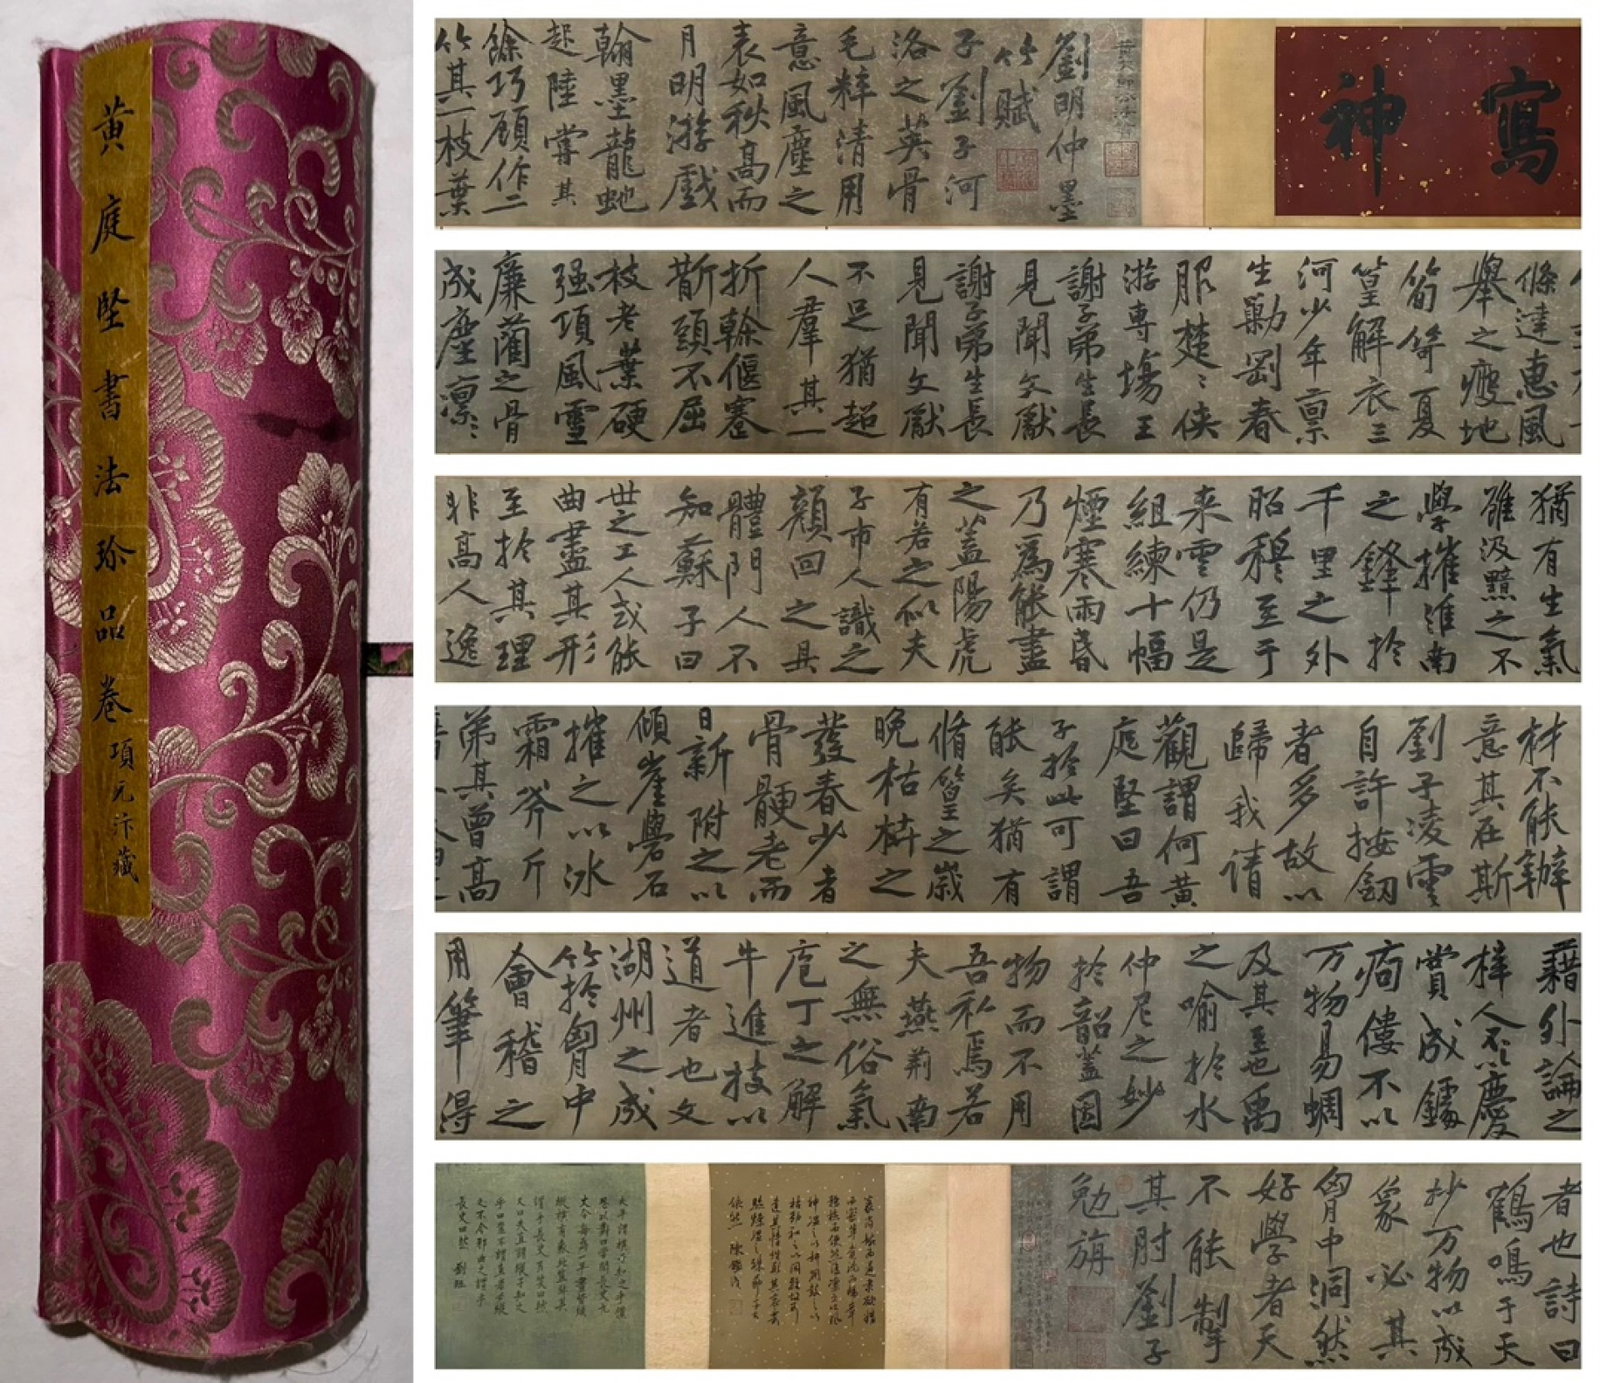 黄庭堅書法珍品卷項元汴藏
寫神
劉明仲墨
竹賦
子劉子河
洛之英骨
毛粹清用
意風塵之
表如秋高而
月明游戲
翰墨龍虵
起陸嘗其
餘巧顧作二
竹其一枝葉
條達惠風
舉之瘦地
筍笴夏
篁解衣三
河少年稟
生勦剛春
服楚〻俠
游專場王
謝子弟生長
見聞文獻
謝子弟生長
見聞文獻
不足猶超
人羣其一
折榦偃蹇
斮頭不屈
枝老葉硬
强項風雪
廉藺之骨
成塵凛〻
猶有生氣
雖汲黯之不
學摧淮南
之鋒於
千里之外
昭穆至于
来雲仍是
組練十幅
煙寒雨昏
乃爲能盡
之蓋陽虎
有若之似夫
子市人識之
顔回之具
體門人不
知蘇子曰
世之工人或能
曲盡其形
至於其理
非高人逸
材不能辦
意其在斯
劉子凌雲
自許按劒
者多故以
歸我請
觀謂何黄
庭堅曰吾
子於此可謂
能矣猶有
脩篁之歲
晚枯枿之
發春少者
骨骾老而
日新附之以
傾崖礐石
摧之以冰
霜斧斤
第其曾高
藉外論之
梓人不以慶
賞成鐻
痀僂不以
万物易蜩
及其至也禹
之喻於水
仲尼之妙
於韶蓋因
物而不用
吾私焉若
夫燕荆南
之無俗氣
庖丁之解
牛進技以
道者也文
湖州之成
竹於胷中
會稽之
用筆得
者也詩曰
鶴鳴于天
抄万物以成
象必其
胷中洞然
好學者天
不能掣
其肘劉子
勉旃